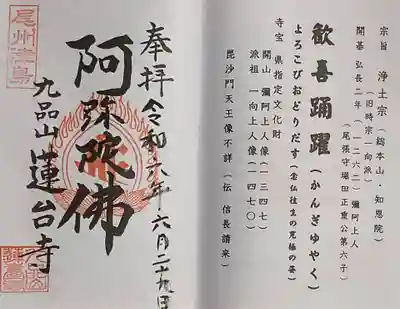 宗旨 浄土宗(総本山・知恩院)
(旧時宗一向派)
開基 弘長二年(一二六二)彌阿上人
(尾張守堀田正重公第六子)
歓喜踊躍(かんぎゆやく)
よろこびおどりだす(念仏往生の究極の姿)
寺宝 県指定文化財
開山 彌阿上人像(一三四七)
派祖 一向上人像(一四七〇)
毘沙門天王像不詳(伝 信長請来)
奉拝 令和六年六月二十九日
阿弥陀佛
九品山 蓮台寺
尾州津島